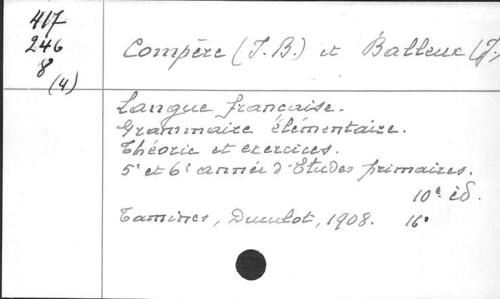 417
246
8
(4)
Compère (J. B.) et Balleux (J.
Langue française.
Grammaire élémentaire.
Théorie et exercices.
5e et 6e année d'Etudes primaires.
10e éd.
Tamines, Duculot, 1908. 16°